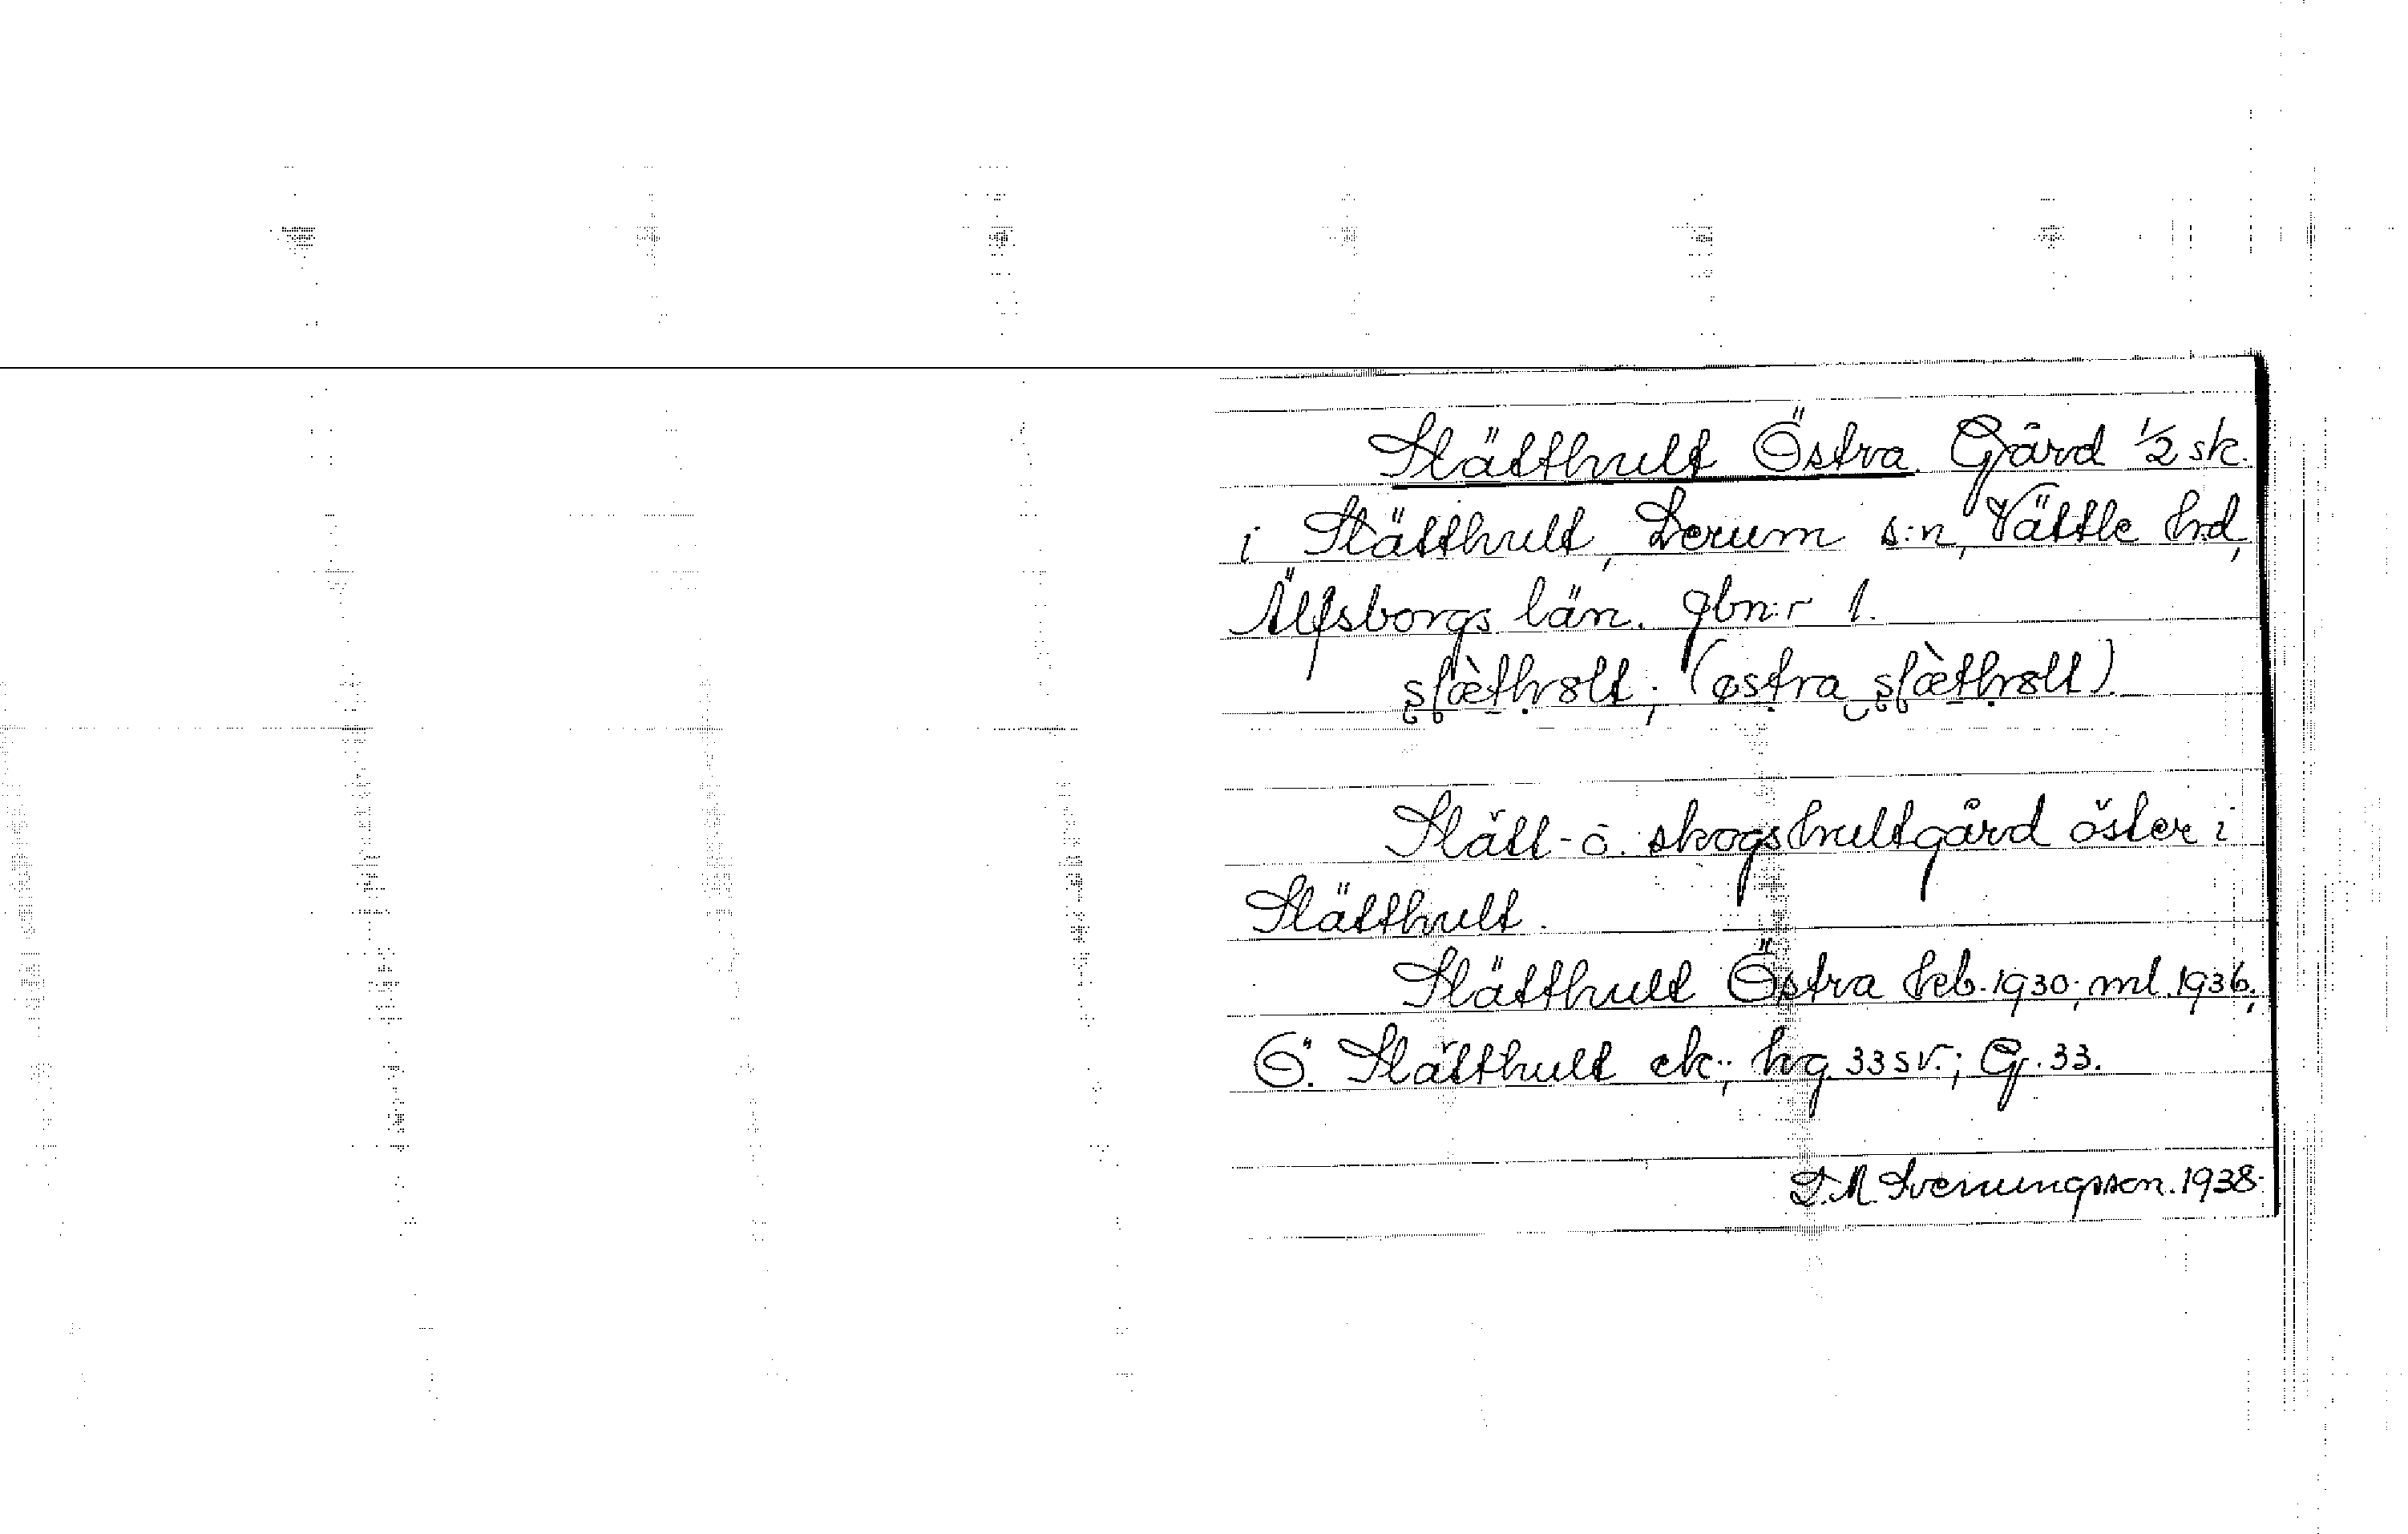 Slätthult Östra. Gård 1/2 sk.
i Slätthult, Lerum s:n, Vättle hd,
Älfsborgs län. gbn:r 1.
slæ̀thrɷlt; (østra slæ̀thrɷlt).
Slätt- o. skogshultgård öster i
Slätthult.
Slätthult Östra Jeb. 1930; ml. 1936;
Ö. Slätthult ek.; hvg 33 sv.; Gj. 33.
D.M. Sveningsson. 1938.